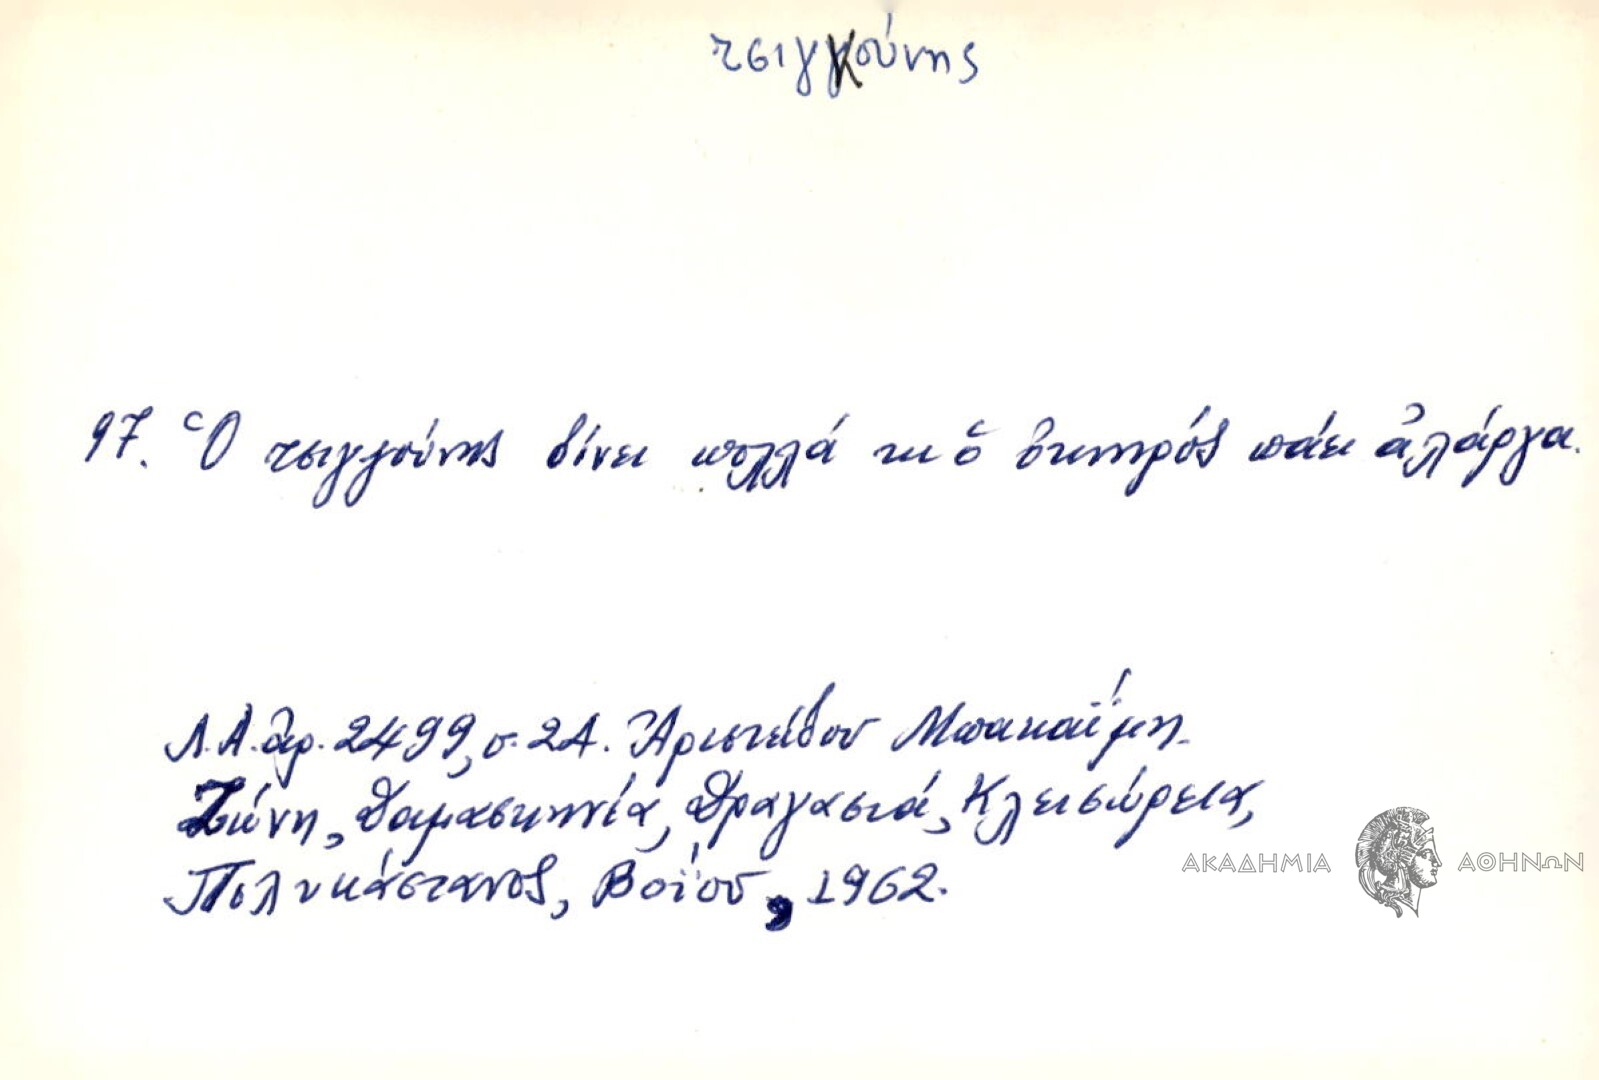 τσιγκούνης
97. Ὁ τσιγγούνης δίνει πολλά κι ὁ ὀκνηρός πάει ἀλάργα.
Λ.Α. ἀρ. 2499, σ. 24. Ἀριστείδου Μπακαΐμη
Ζώνη, Δαμασκηνιά, Δραγασιά, Κλεισώρεια,
Πολυκάστανος, Βοΐου, 1962.
ΑΚΑΔΗΜΙΑ ΑΘΗΝΩΝ